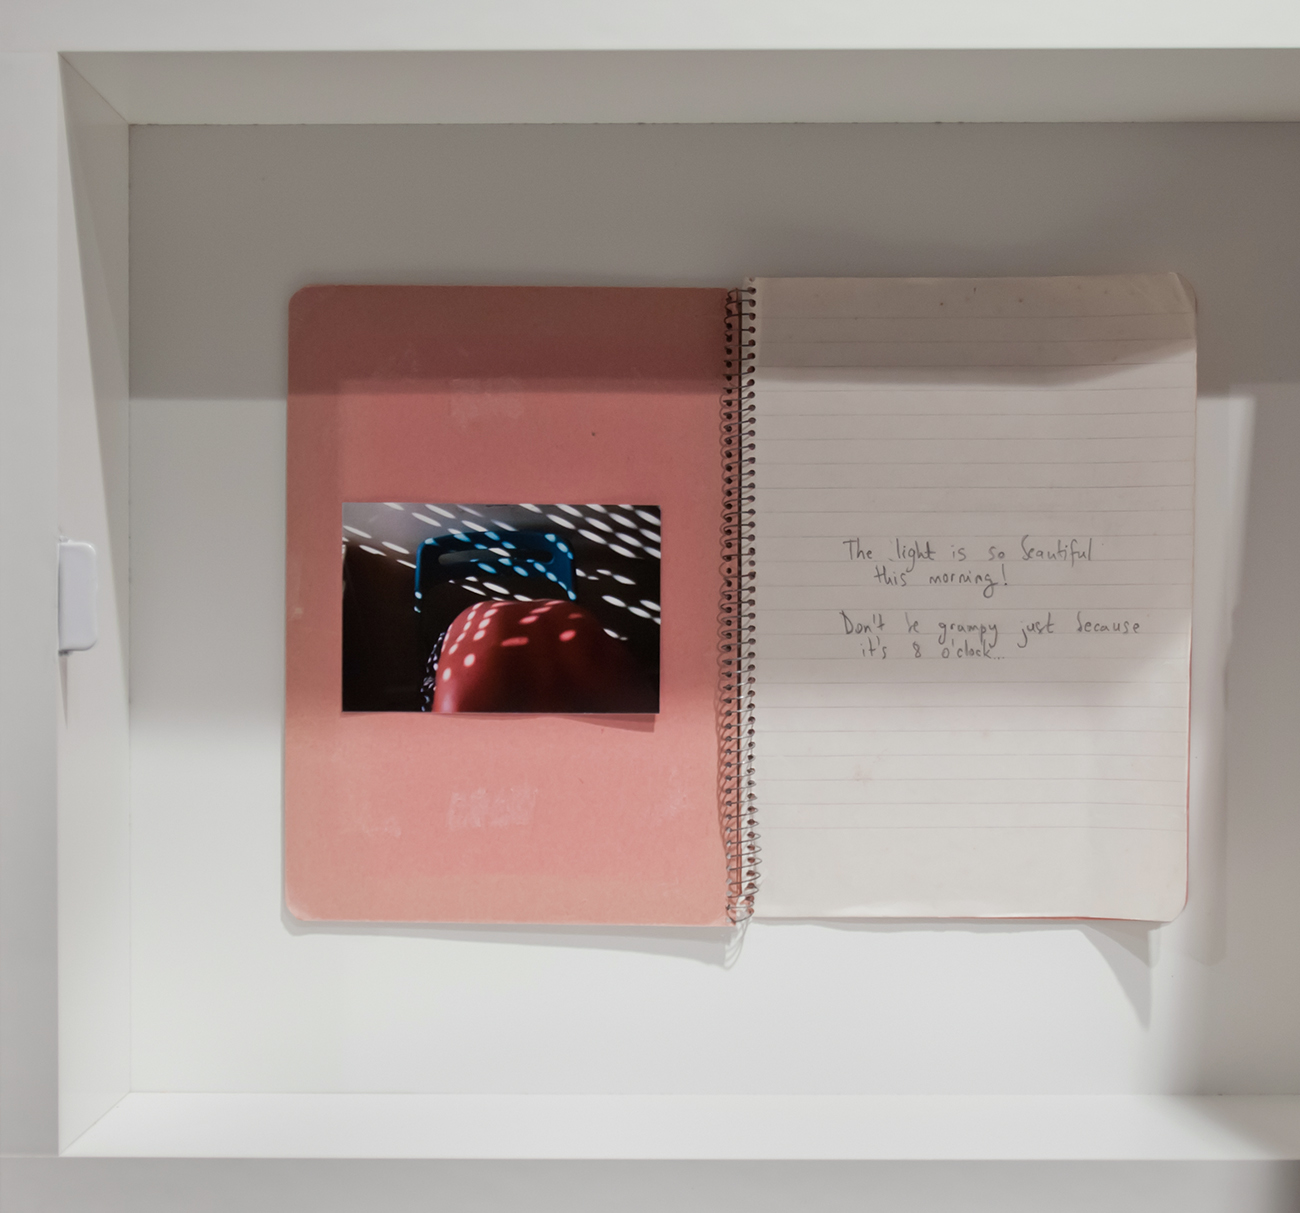 The light is so beautiful
this morning!
Don't be grumpy just because
it's 8 o'clock...